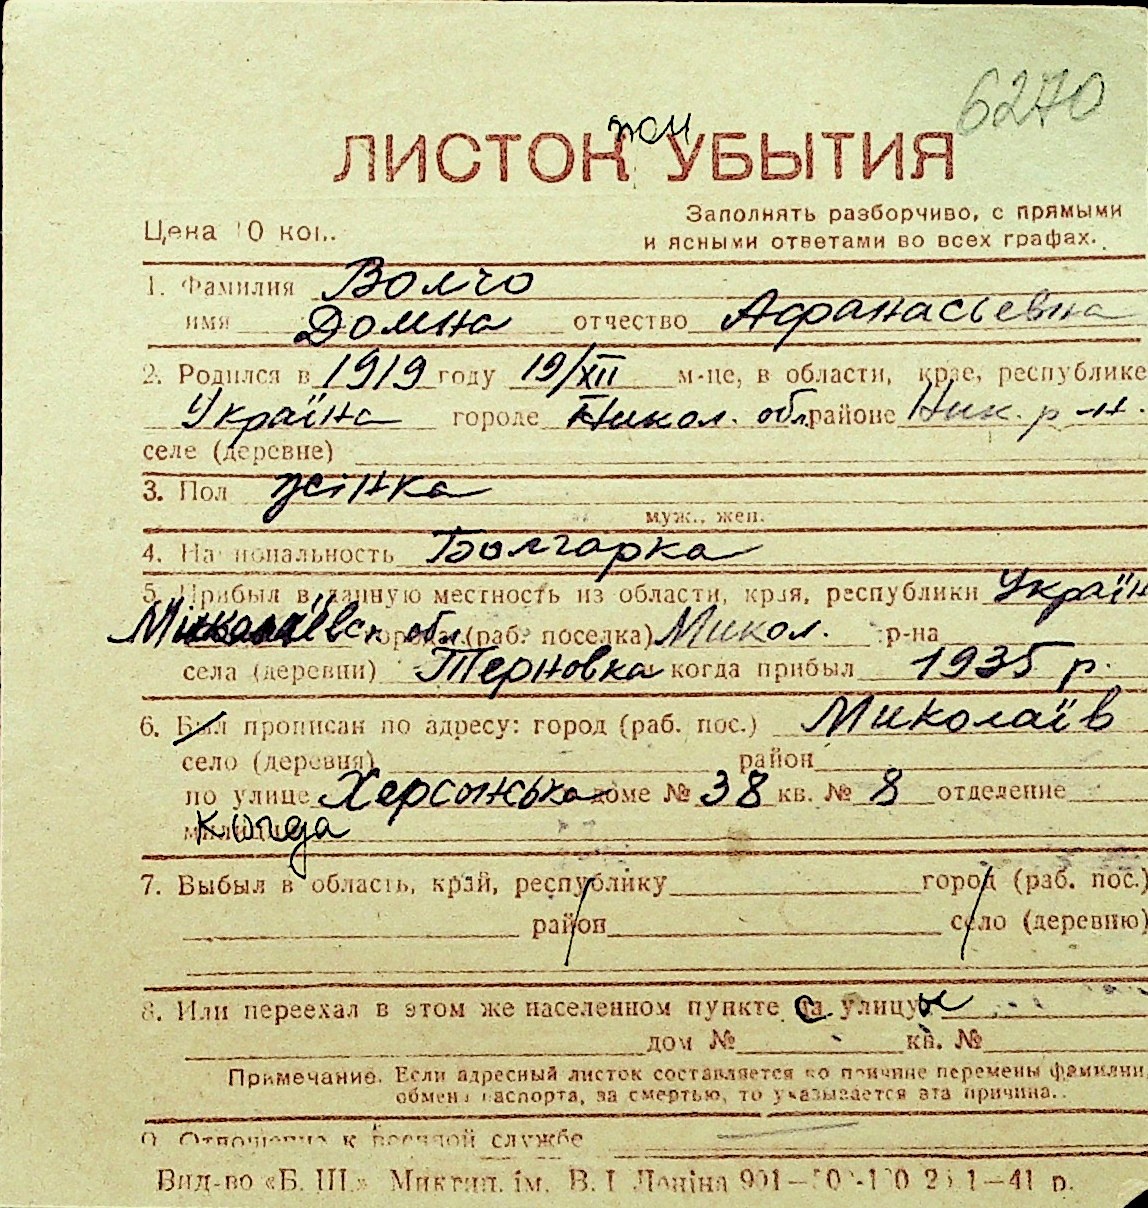 6270
при
ЛИСТОК УБЫТИЯ
Заполнять разборчиво, с прямыми
Цена 10 коп.
и ясными ответами во всех графах.
1. Фамилия Волчо
имя Домна отчество Афанасьевна
2. Родился в 1919 году 19/XII м-це, в области, крае, республике
Україна городе Никол. обл. районе Ник. р-н.
селе (деревне)
3. Пол жінка
муж., жен.
4. Национальность Болгарка
5. Прибыл в данную местность из области, края, республики Україн
Миколаївск обл. города (раб. поселка) Микол. р-на
села (деревни) Терновка когда прибыл 1935 р.
6. Был прописан по адресу: город (раб. пос.) Миколаїв
село (деревня) район
по улице Херсонська доме № 38 кв. № 8 отделение
милиции когда
7. Выбыл в область, край, республику город (раб. пос.)
район село (деревню)
8. Или переехал в этом же населенном пункте с улицы
дом № кв. №
Примечание. Если адресный листок составляется по причине перемены фамилии,
обмена паспорта, за смертью, то указывается эта причина.
9. Отношение к военной службе
Вид-во «Б. Ш.» Миктип. ім. В. І Леніна 901— 1—41 р.